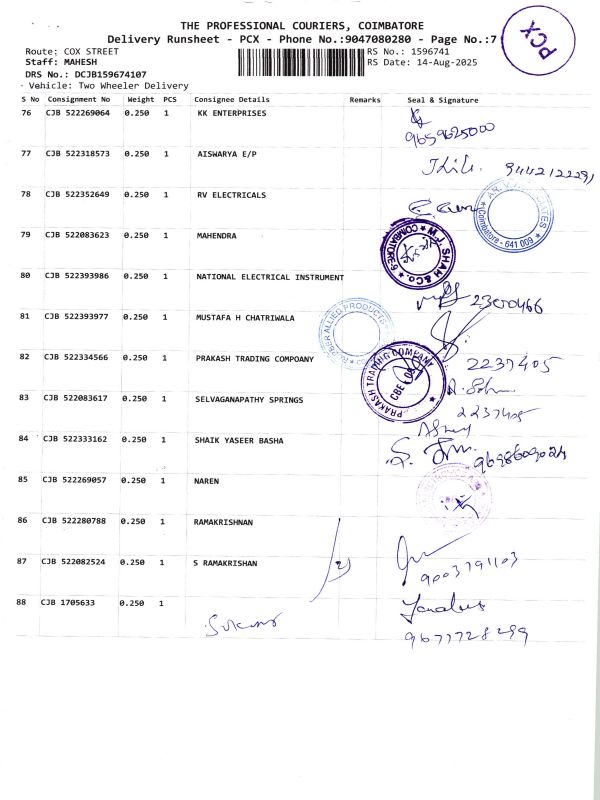 THE PROFESSIONAL COURIERS, COIMBATORE
Delivery Runsheet - PCX - Phone No.:9047080280 - Page No.:7
PCX
Route: COX STREET
RS No.: 1596741
Staff: MAHESH
RS Date: 14-Aug-2025
DRS No.: DCJB159674107
Vehicle: Two Wheeler Delivery
S No Consignment No Weight PCS Consignee Details Remarks Seal & Signature
76 CJB 522269064 0.250 1 KK ENTERPRISES
9659625000
77 CJB 522318573 0.250 1 AISWARYA E/P
78 CJB 522352649 0.250 1 RV ELECTRICALS
Coimbatore - 641 009
79 CJB 522083623 0.250 1 MAHENDRA
SHAH & Co.
80 CJB 522393986 0.250 1 NATIONAL ELECTRICAL INSTRUMENT
81 CJB 522393977 0.250 1 MUSTAFA H CHATRIWALA
ALLIED PRODUCTS
82 CJB 522334566 0.250 1 PRAKASH TRADING COMPOANY
PRAKASH TRADING COMPANY
2237405
83 CJB 522083617 0.250 1 SELVAGANAPATHY SPRINGS
2237405
84 CJB 522333162 0.250 1 SHAIK YASEER BASHA
85 CJB 522269057 0.250 1 NAREN
86 CJB 522280788 0.250 1 RAMAKRISHNAN
87 CJB 522082524 0.250 1 S RAMAKRISHAN
9003791103
88 CJB 1705633 0.250 1
9677728299